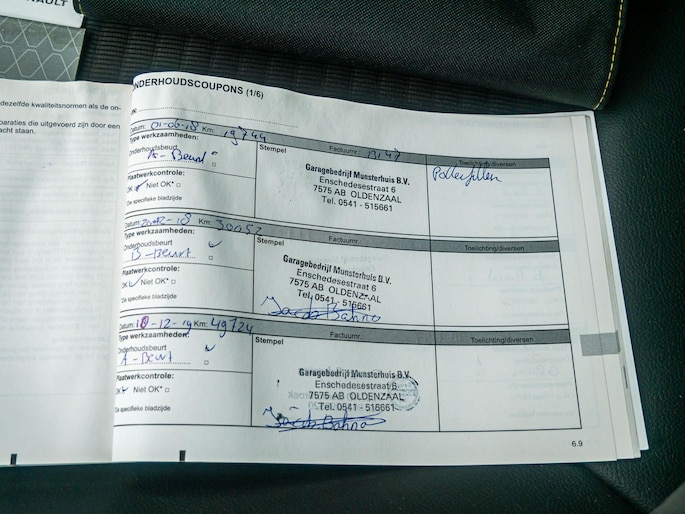 NAULT
dezelfde kwaliteitsnormen als de on-
paraties die uitgevoerd zijn door een
acht staan.
ONDERHOUDSCOUPONS (1/6)
Datum: 01-06-18 Km: 19744 Factuurnr.: Toelichting/diversen
Type werkzaamheden:
Onderhoudsbeurt
A-Beurt
Plaatwerkcontrole:
OK Niet OK*
*Zie specifieke bladzijde
Stempel
Garagebedrijf Munsterhuis B.V.
Enschedesestraat 6
7575 AB OLDENZAAL
Tel. 0541 - 515661
Pollenfilter
Km: 30052 Factuurnr.: Toelichting/diversen
Type werkzaamheden:
Onderhoudsbeurt
B-Beurt
Plaatwerkcontrole:
OK Niet OK*
*Zie specifieke bladzijde
Stempel
Garagebedrijf Munsterhuis B.V.
Enschedesestraat 6
7575 AB OLDENZAAL
Tel. 0541 - 515661
Datum: 10-12-19 Km: 49724 Factuurnr.: Toelichting/diversen
Type werkzaamheden:
Onderhoudsbeurt
A-Beurt
Plaatwerkcontrole:
OK Niet OK*
*Zie specifieke bladzijde
Stempel
Garagebedrijf Munsterhuis B.V.
Enschedesestraat 6
7575 AB OLDENZAAL
Tel. 0541 - 515661
6.9